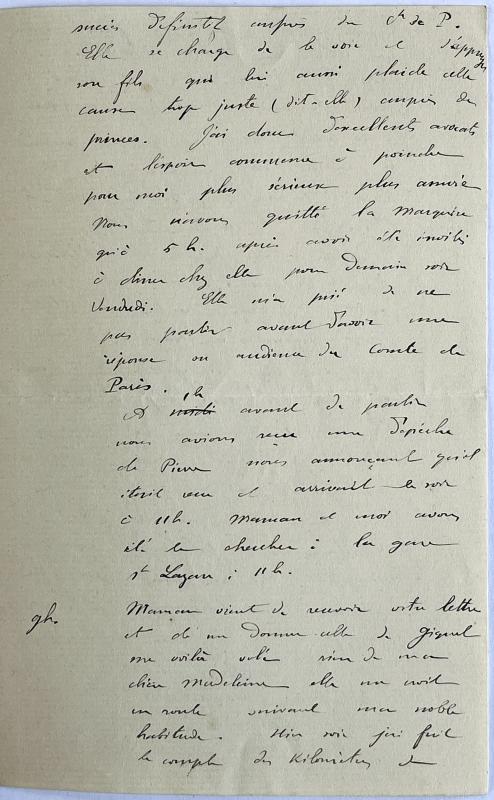 succès définitif auprès du Cte de P.
Elle se charge de le voir et d'appuyer
son fils qui lui aussi plaide cette
cause trop juste (dit-elle) auprès du
princes. J'ai donc d'excellents avocats
et l'espoir commence à poindre
pour moi plus sérieux plus
Nous n'avons quitté la Marquise
qu'à 5 h. après avoir été invités
à dîner chez elle pour demain soir
Vendredi. Elle m'a prié de ne
pas partir avant d'avoir une
réponse ou audience du Comte de
Paris.
A 1h avant de partir
nous avions reçu une dépêche
de Pierre nous annonçant qu'il
était reçu et arrivait le soir
à 11h. Maman et moi avons
été le chercher à la gare
St Lazare à 11h.
9h. Maman vient de recevoir votre lettre
et de me donner celle de
me voilà rien de ma
chère Madeleine elle me croit
en route suivant ma noble
habitude. Hier soir j'ai fait
le compte des Kilomètres